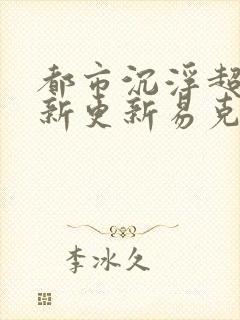 都市沉浮超
新更新易克
李冰久